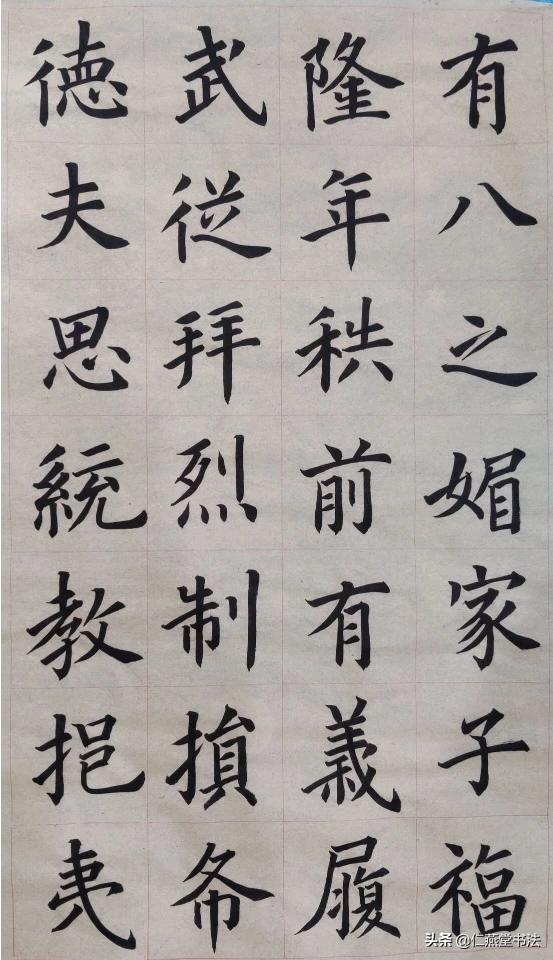 有八之媚家子福
隆年秩前有義履
武従拜烈制損
徳夫思統教挹夷
头条 @仁燕堂书法